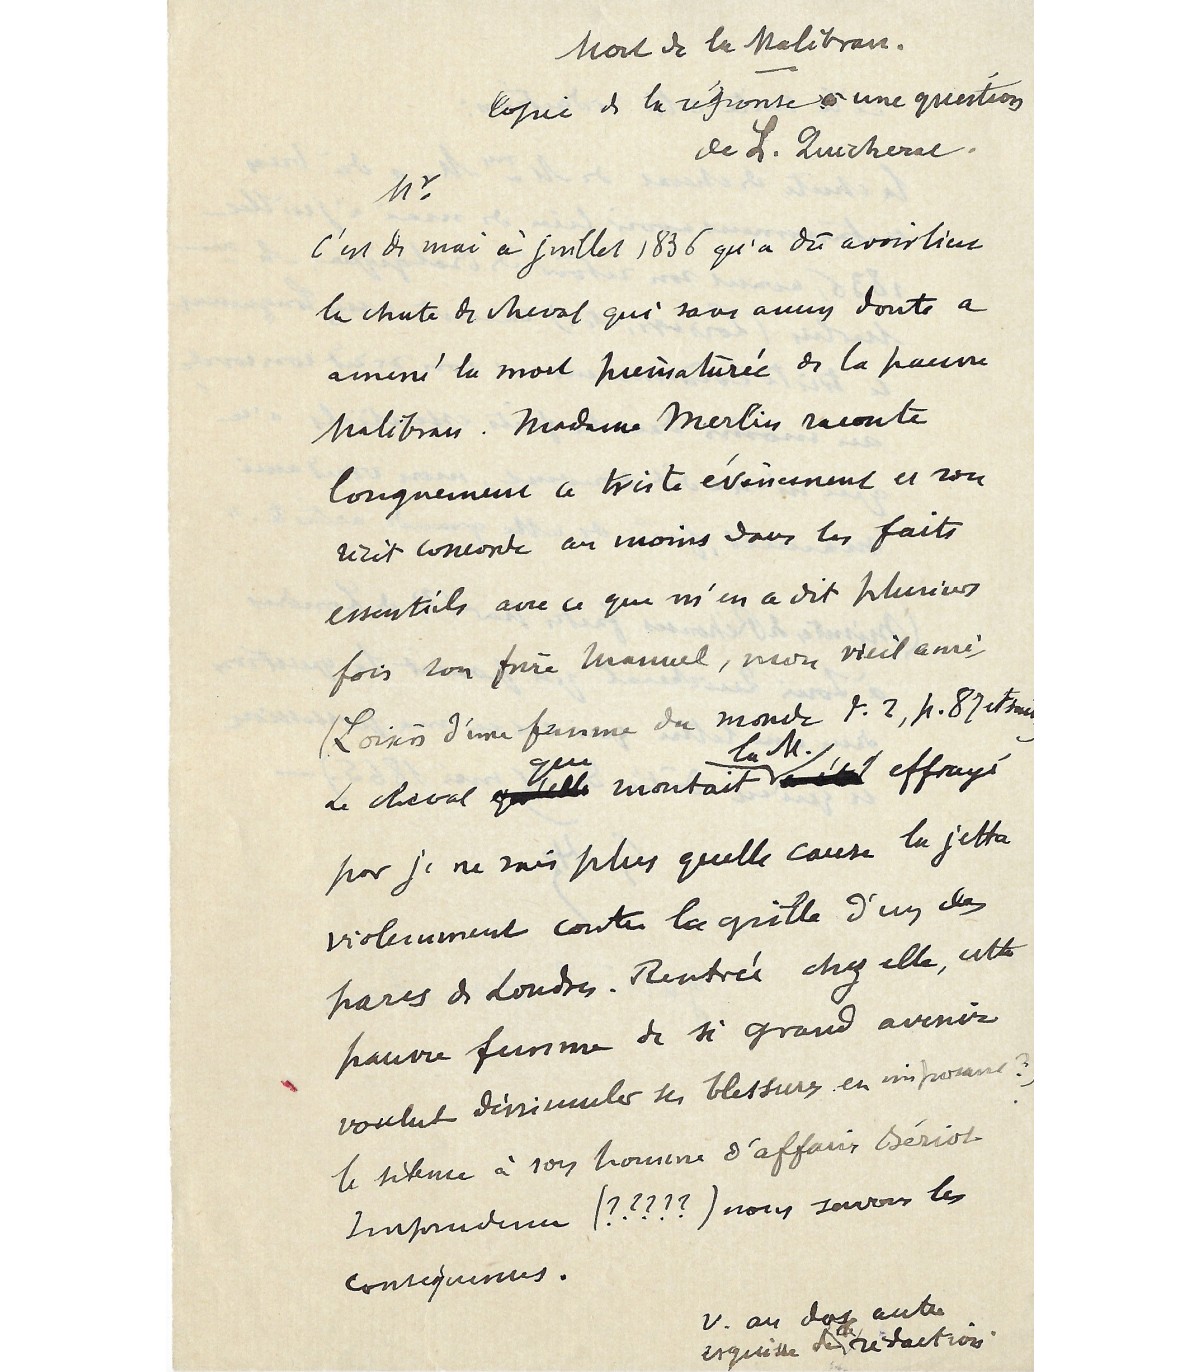 Mort de la Malibran.
Copie de la réponse à une question
de L. Quicherat.
Mr.
C'est de mai à juillet 1836 qu'a dû avoir lieu
la chute de cheval qui sans aucun doute a
amené la mort prématurée de la pauvre
Malibran. Madame Merlin raconte
longuement ce triste événement et son
récit concorde au moins dans les faits
essentiels avec ce que m'en a dit plusieurs
fois son frère Manuel, mon vieil ami
(Loisirs d'une femme du monde t. 2, p. 87 et suiv
que la M.
Le cheval qu'elle montait a été effrayé
par je ne sais plus quelle cause la jetta
violemment contre la grille d'un des
parcs de Londres. Rentrée chez elle, cette
pauvre femme de si grand avenir
voulut dissimuler ses blessures en imposant ?
le silence à son homme d'affaires Bériot
Imprudence (?????) nous savons les
conséquences.
v. au dos autre
esquisse de rédaction